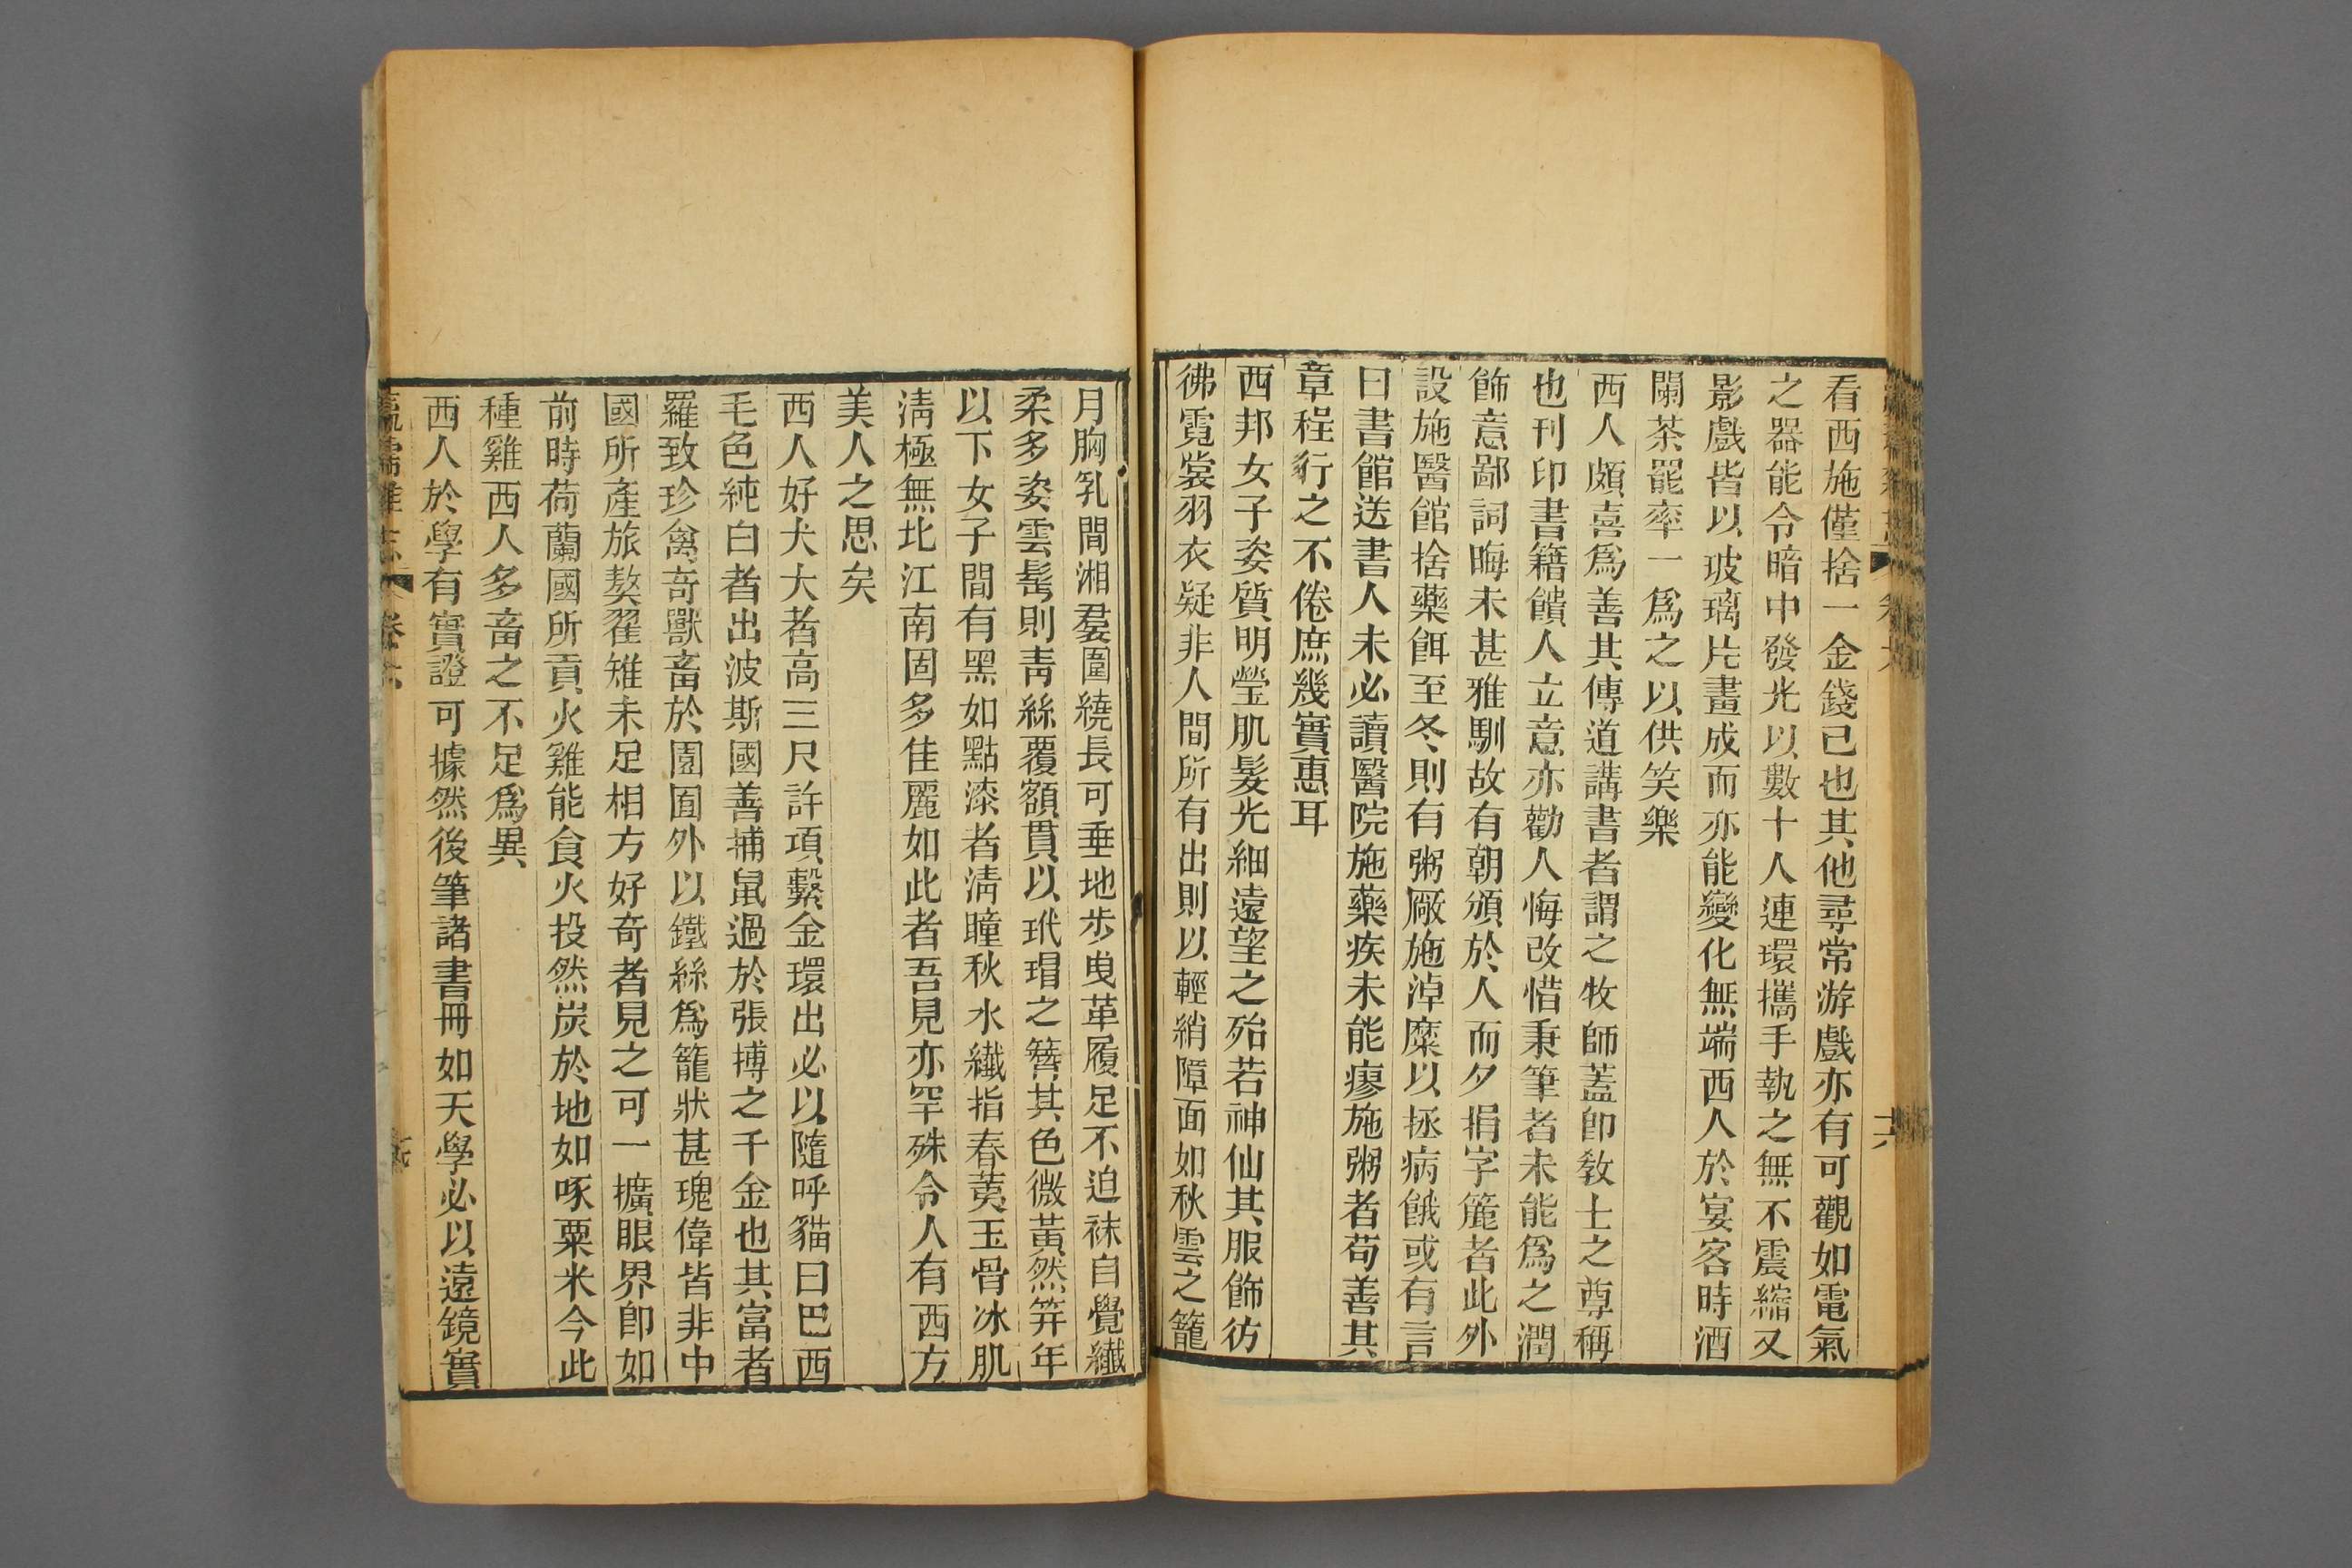 看西施僅捨一金錢已也其他尋常游戲亦有可觀如電氣
之器能令暗中發光以數十人連環攜手執之無不震縮又
影戲皆以玻璃片畫成而亦能變化無端西人於宴客時酒
闌茶罷率一爲之以供笑樂
西人頗喜爲善其傳道講書者謂之牧師蓋卽敎士之尊稱
也刊印書籍饋人立意亦勸人悔改惜秉筆者未能爲之潤
飾意鄙詞晦未甚雅馴故有朝頒於人而夕捐字簏者此外
設施醫館捨藥餌至冬則有粥厰施淖糜以拯病餓或有言
曰書館送書人未必讀醫院施藥疾未能瘳施粥者苟善其
章程行之不倦庶幾實惠耳
西邦女子姿質明瑩肌髮光細遠望之殆若神仙其服飾彷
彿霓裳羽衣疑非人間所有出則以輕綃障面如秋雲之籠
月胸乳間湘羣圍繞長可垂地步曳革履足不迫袜自覺纖
柔多姿雲髩則靑絲覆額貫以玳瑁之簪其色微黃然笄年
以下女子間有黑如點漆者淸瞳秋水纖指春荑玉骨冰肌
淸極無比江南固多佳麗如此者吾見亦罕殊令人有西方
美人之思矣
西人好犬大者高三尺許項繫金環出必以隨呼貓曰巴西
毛色純白者出波斯國善捕鼠過於張搏之千金也其富者
羅致珍禽奇獸畜於園囿外以鐵絲爲籠狀甚瑰偉皆非中
國所產旅獒翟雉未足相方好奇者見之可一擴眼界卽如
前時荷蘭國所貢火雞能食火投然炭於地如啄粟米今此
種雞西人多畜之不足爲異
西人於學有實證可據然後筆諸書冊如天學必以遠鏡實
卷六